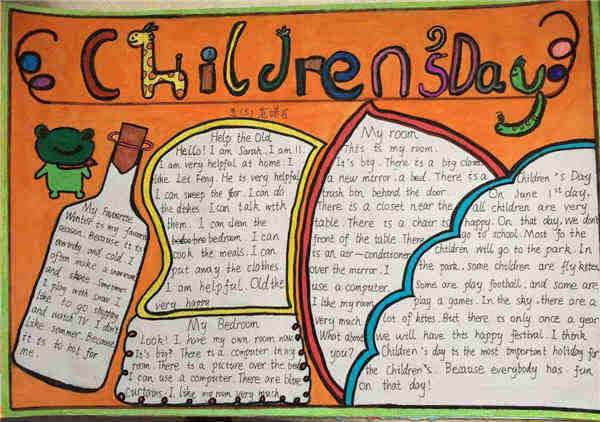 Children's Day
My Favourite
Winter is my favourite
season. Because it is
snowindy and cold. I
often make a snowman
and skate. Sometimes
I play with snow. I
like to go shopping
and watch TV. I don't
like summer. Because
it is to hot for
me.
Help the Old
Hello! I am Sarah. I am 11.
I am very helpful at home. I
like Lei Feng. He is very helpful.
I can sweep the floor. I can do
the dishes. I can talk with
them. I can clean the
bedroom. I can
cook the meals. I can
put away the clothes.
I am helpful. Old the
very happy
My Bedroom
Look! I have my own room now.
It's big? There is a computer in my
room. There is a picture over the bed.
I can use a computer. There are blue
curtains. I like my room very much.
My room
This is my room.
It's big. There is a big closet
a new mirror. a bed. There is a
trash bin behind the door.
There is a closet near the
table. There is a chair is
front of the table. There
is an air-conditioner
over the mirror. I
use a computer.
I like my room
very much.
What about
you?
Children's Day
On June 1st day,
all children are very
happy. On that day, we don't
go to school. Most fo the
children will go to the park. In
the park, some children are fly kites,
Some are play football, and some are
play a games. In the sky, there are a
lot of kites. But there is only once a year
we will have this happy festival. I think
Children's day is the most important holiday for
the Children's. Because everybody has fun
on that day!